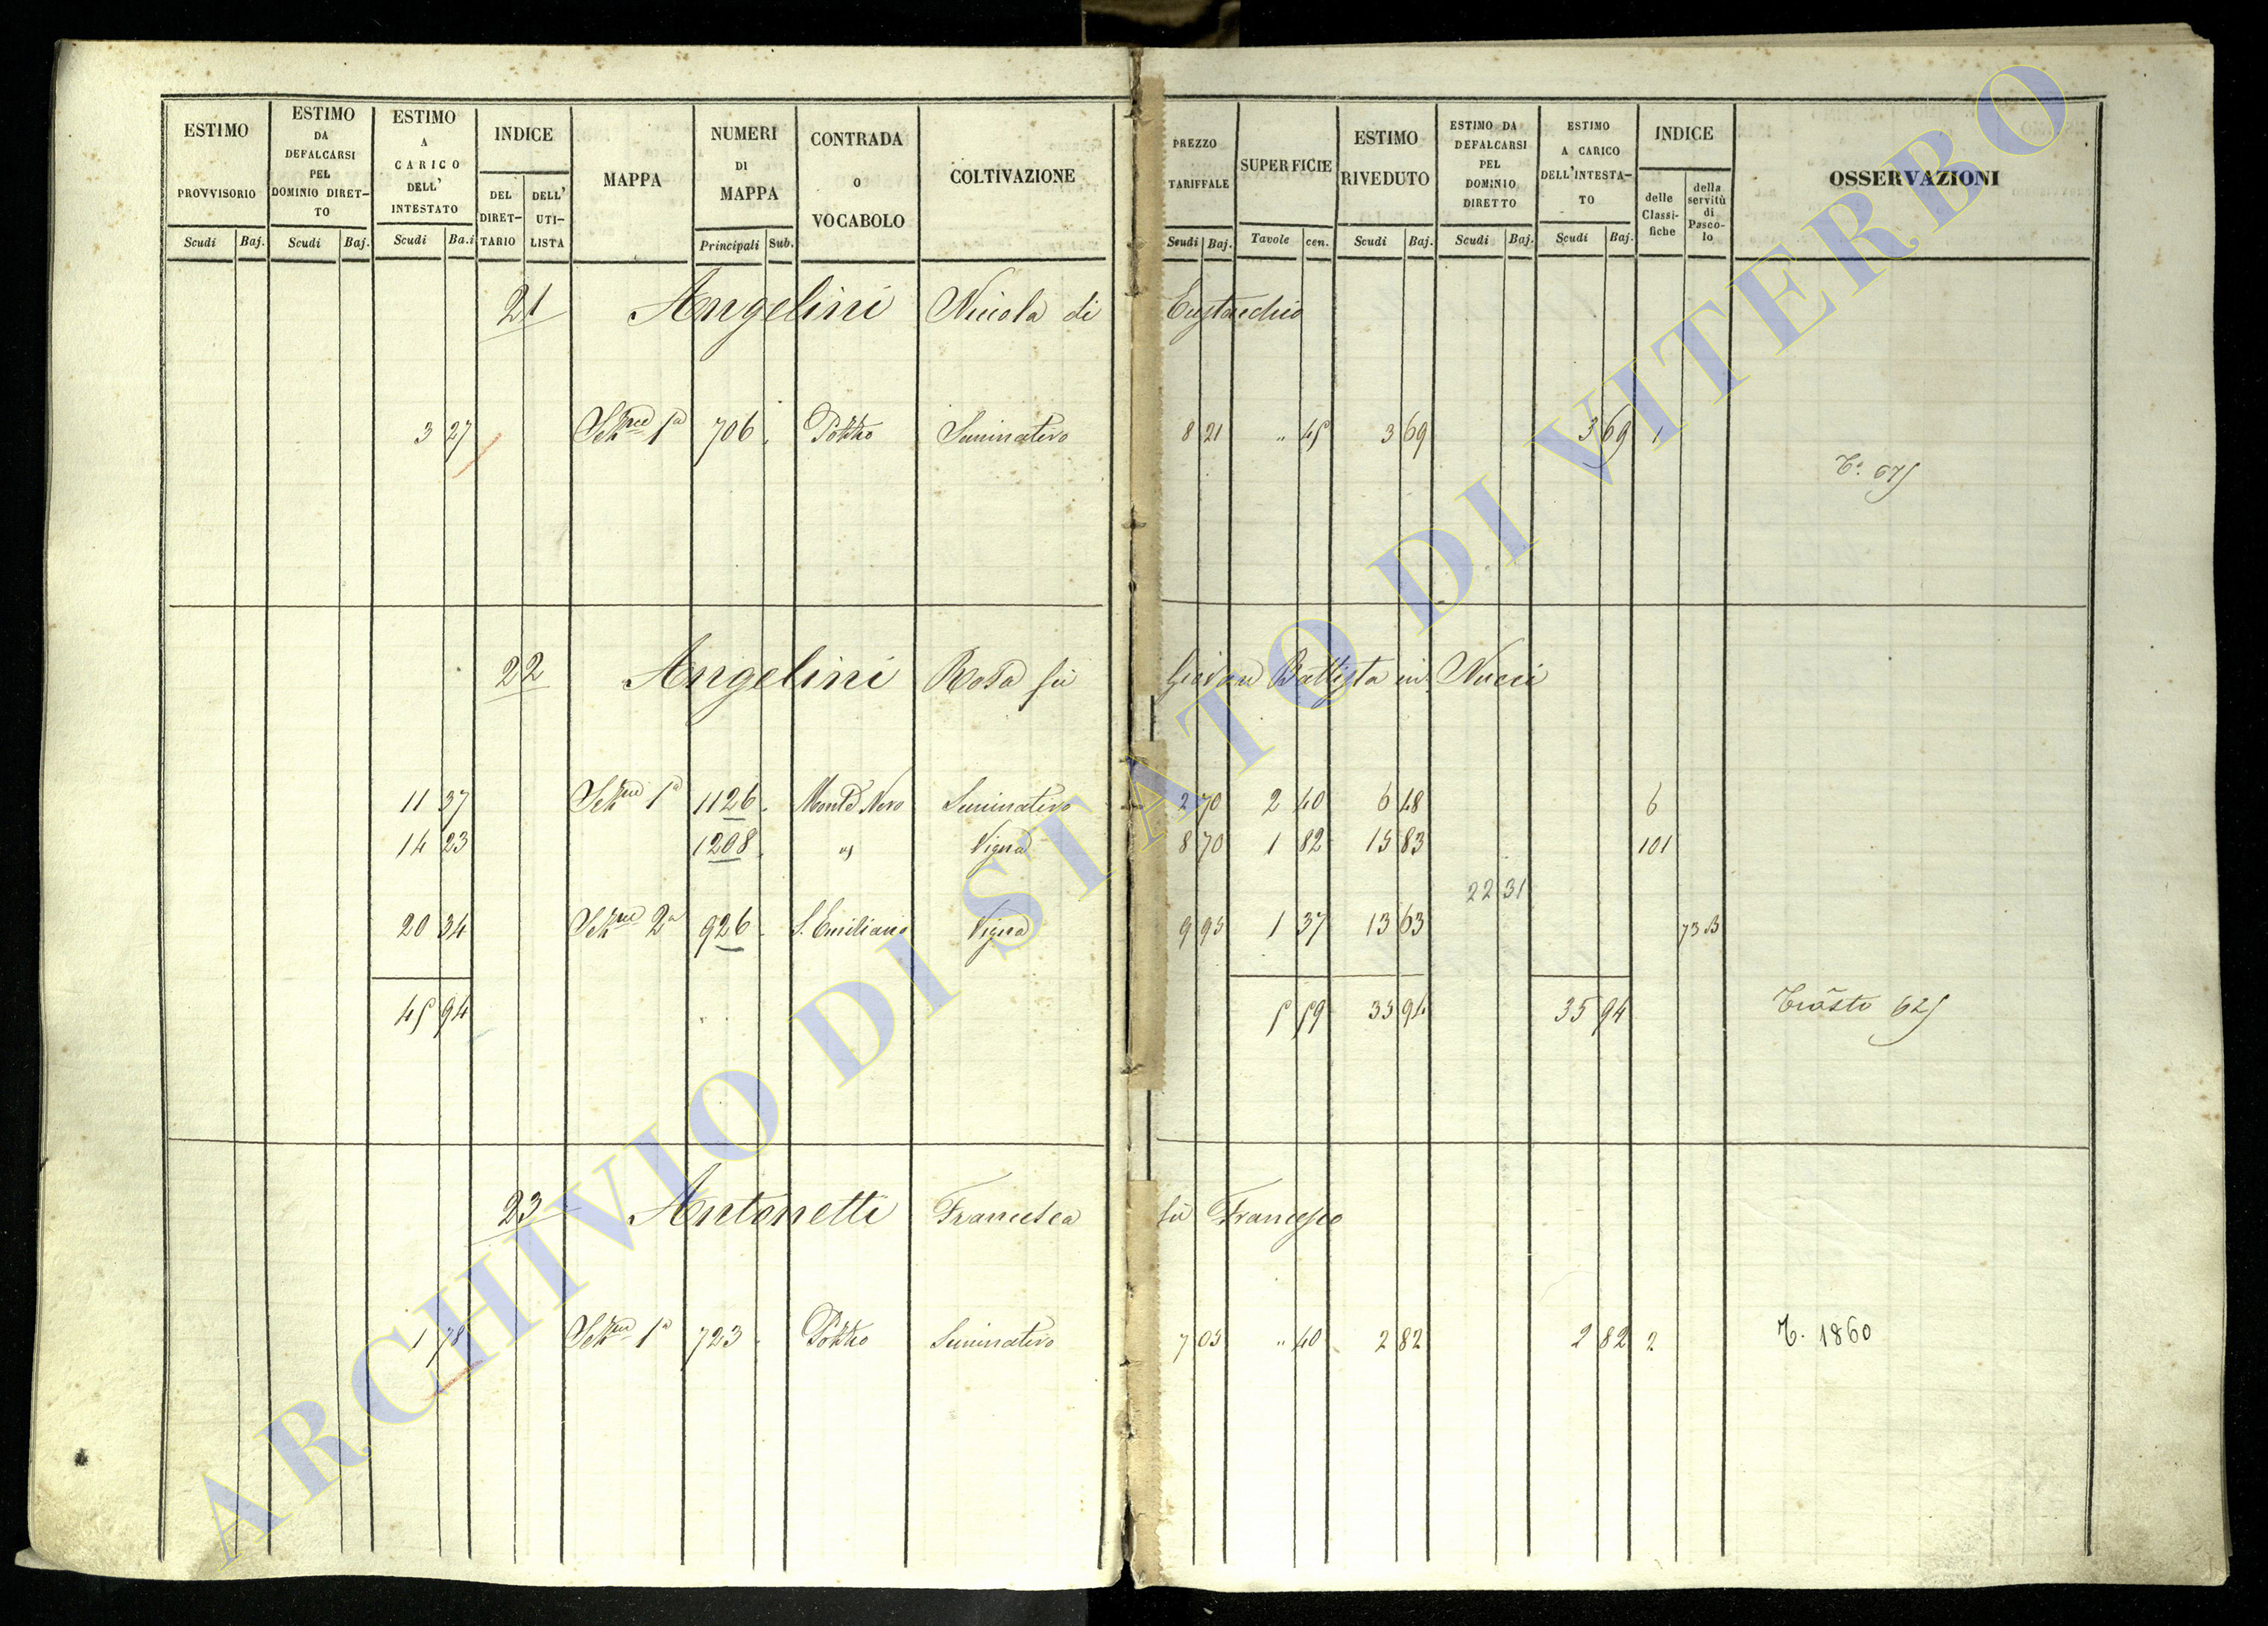 ESTIMO PROVVISORIO
Scudi Baj.
ESTIMO DA DEFALCARSI PEL DOMINIO DIRET-TO
Scudi Baj.
ESTIMO A CARICO DELL' INTESTATO
Scudi Ba.i
INDICE
DEL DIRET-TARIO
DELL' UTI-LISTA
MAPPA
NUMERI DI MAPPA
Principali Sub.
CONTRADA O VOCABOLO
COLTIVAZIONE
PREZZO TARIFFALE
Scudi Baj.
SUPERFICIE
Tavole cen.
ESTIMO RIVEDUTO
Scudi Baj.
ESTIMO DA DEFALCARSI PEL DOMINIO DIRETTO
Scudi Baj.
ESTIMO A CARICO DELL'INTESTA-TO
Scudi Baj.
INDICE
delle Classi-fiche
della servitù di Pasco-lo
OSSERVAZIONI
21 Angelini Nicola di Eustacchio
3 27 1a 706 Pozzo Seminativo 8 21 " 45 3 69 3 69 1
22 Angelini Rosa fu Giovan Battista in Nucci
11 37 1a 1126 Monte Nero Seminativo 2 70 2 40 6 48 6
14 23 1208 Vigna 8 70 1 82 15 83 101
22 31
20 34 2a 926 S. Emiliano Vigna 9 95 1 37 13 63 73 B
45 94 5 59 35 94 35 94
23 Antonetti Francesca fu Francesco
1 78 1a 723 Pozzo Seminativo 7 05 " 40 2 82 2 82 2 T. 1860
ARCHIVIO DI STATO DI VITERBO